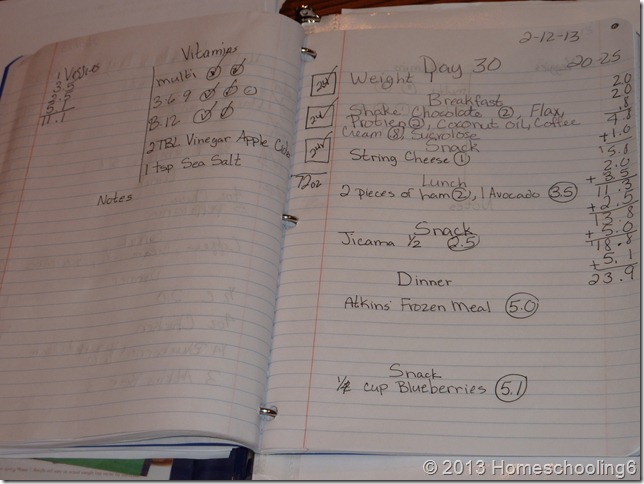 Vitamins
multi
3.6.9
B.12
2TBL Vinegar Apple
1 tsp Sea Salt
Notes
2-12-13
Day 30
20-25
Weight
Breakfast
Shake Chocolate (2), Flax
Protien (2), Coconut Oil, Coffee
Cream (.8) Sucrolose
Snack
String Cheese (1)
72oz
Lunch
2 pieces of ham (2), 1 Avocado (3.5)
Snack
Jicama 1/2 (2.5)
Dinner
Atkins Frozen Meal (5.0)
Snack
1/4 cup Blueberries (5.1)
2.0
2.0
.8
4.8
+1.0
5.8
2.0
+3.5
11.3
+2.5
13.8
+5.0
18.8
+5.1
23.9
© 2013 Homeschooling6